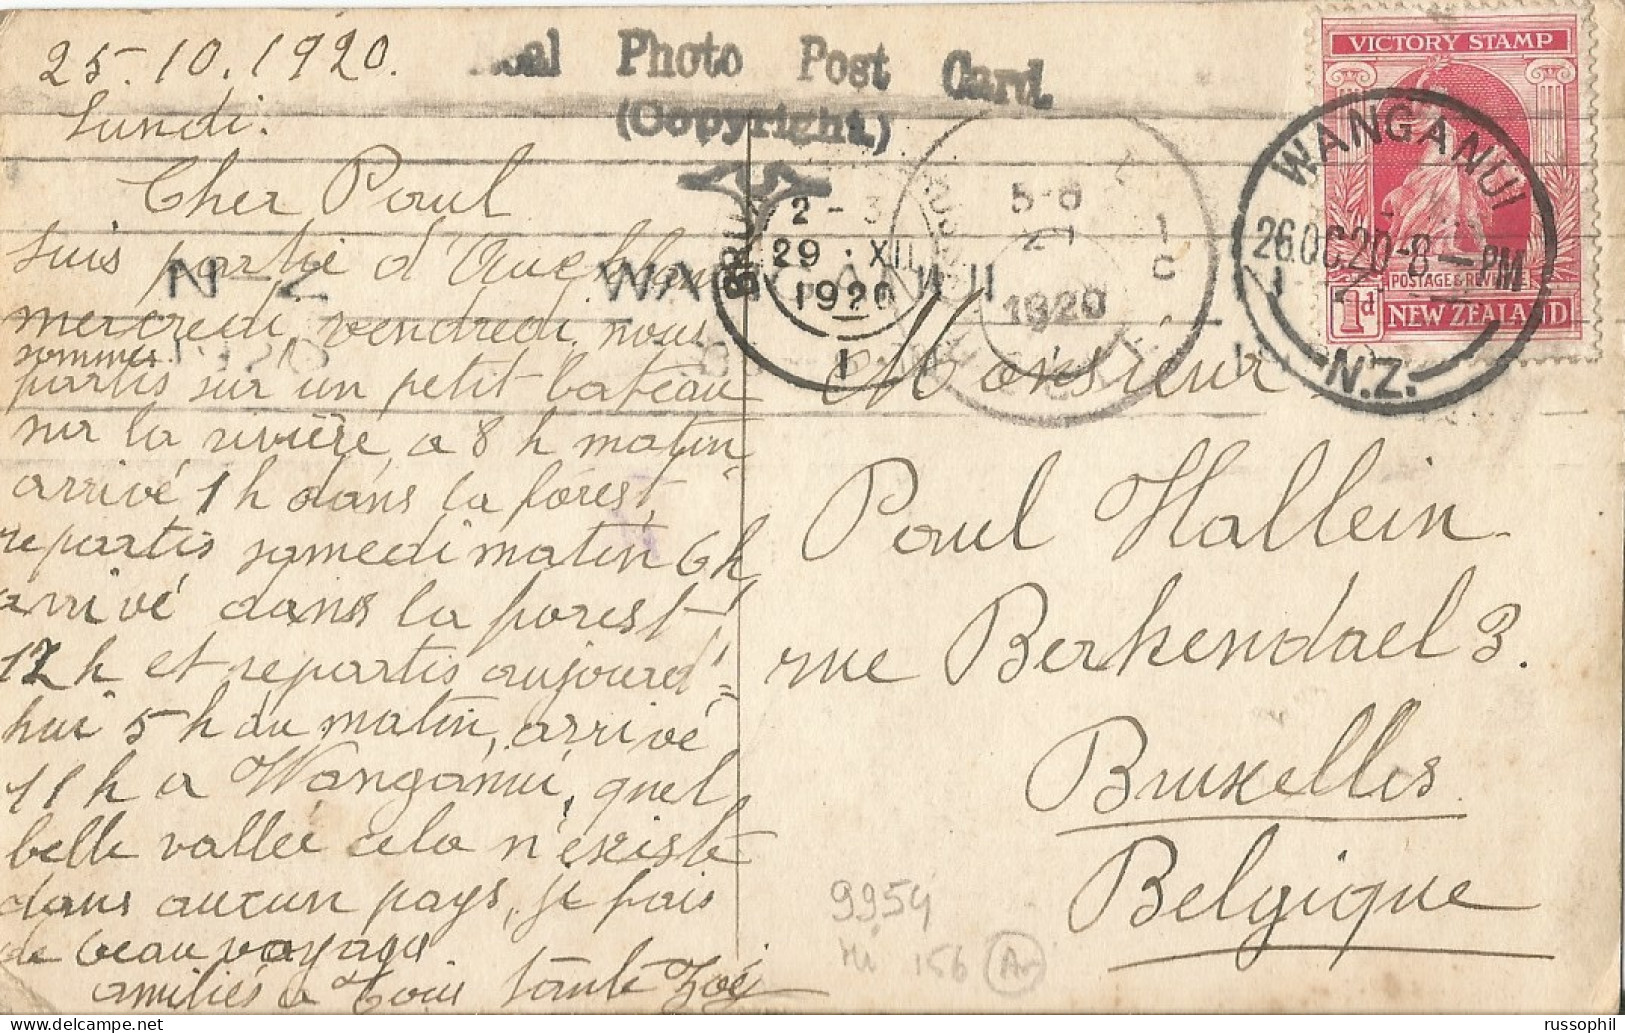 25.10.1920.
Lundi.
Cher Paul
suis partie d'Auckland
mercredi, vendredi nous
sommes
partis sur un petit bateau
sur la rivière, a 8 h matin,
arrivé 1 h dans la forest,
repartis samedi matin 6 h,
arrivé dans la forest
12 h et repartis aujourd'
hui 5 h du matin, arrivé
11 h a Wanganui, quel
belle vallée cela n'existe
dans aucun pays, je fais
de beau voyages
amitiés a tous tante Zoé
Real Photo Post Card.
(Copyright.)
VICTORY STAMP
POSTAGE & REVENUE
1d NEW ZEALAND
WANGANUI
26 OC 20-8 — PM
N.Z.
2-3
29 · XII
1920
1
1920
N-Z
Monsieur
Paul Hallein
rue Berkendael 3.
Bruxelles
Belgique
9954
Mi 156 Ar
russophil
www.delcampe.net